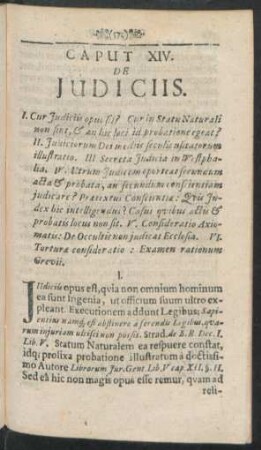 (179)
CAPUT XIV.
DE
JUDICIIS.
I. Cur Judiciis opus sit? Cur in Statu Naturali
non sint, & an hic loci id probatione egeat?
II. Judiciorum Dei mediis seculis usitatorum
illustratio. III Secreta Judicia in Westpha-
lia. IV. Utrum Judicem oporteat secundum
acta & probata, an secundum conscientiam
judicare? Prætextus Conscientiæ: Quis Ju-
dex hic intelligendus? Casus qvibus actis &
probatis locus non sit. V. Consideratio Axio-
matis: De Occultis non judicat Ecclesia. VI.
Torturæ consideratio: Examen rationum
Grevii.
I.
JUdiciis opus est, qvia non omnium hominum
ea sunt ingenia, ut officium suum ultro ex-
pleant. Executionem addunt Legibus; Sapi-
entius namq; est abstinere a ferendis Legibus, qvam
injuriam ulcisci non possis. Strad. de B. B. Dec. I.
Lib. V. Statum Naturalem ea respuere constat,
idq; prolixa probatione illustratum à doctissi-
mo Autore Librorum Jur. Gent. Lib. V cap. XII. §. II.
Sed eâ hic non magis opus esse remur, qvam ad
reli-